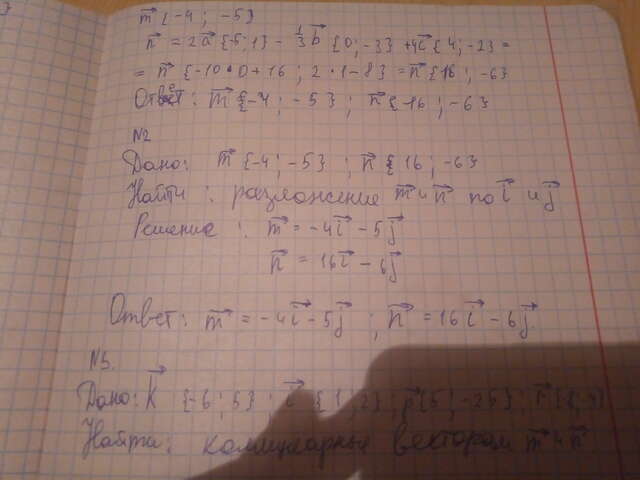 m⃗ {-4 ; -5}
n⃗ = 2a⃗ {-5; 1} - 1/3 b⃗ {0; -3} + 4c⃗ {4; -2} =
= n⃗ {-10 + 0 + 16 ; 2 · 1 - 8} = n⃗ {16 ; -6}
Ответ : m⃗ {-4 ; -5} ; n⃗ {-16 ; -6}
N2
Дано: m⃗ {-4 ; -5} ; n⃗ { 16 ; -6}
Найти : разложение m⃗ и n⃗ по i⃗ и j⃗
Решение : m⃗ = -4i⃗ - 5j⃗
n⃗ = 16i⃗ - 6j⃗
Ответ: m⃗ = -4i⃗ - 5j⃗ ; n⃗ = 16i⃗ - 6j⃗
N3.
Дано: K⃗ {-6 ; 5} ; {1 ; 2} ; p⃗ {5 ; -25} ;
Найти: коллинеарные векторам m⃗ и n⃗